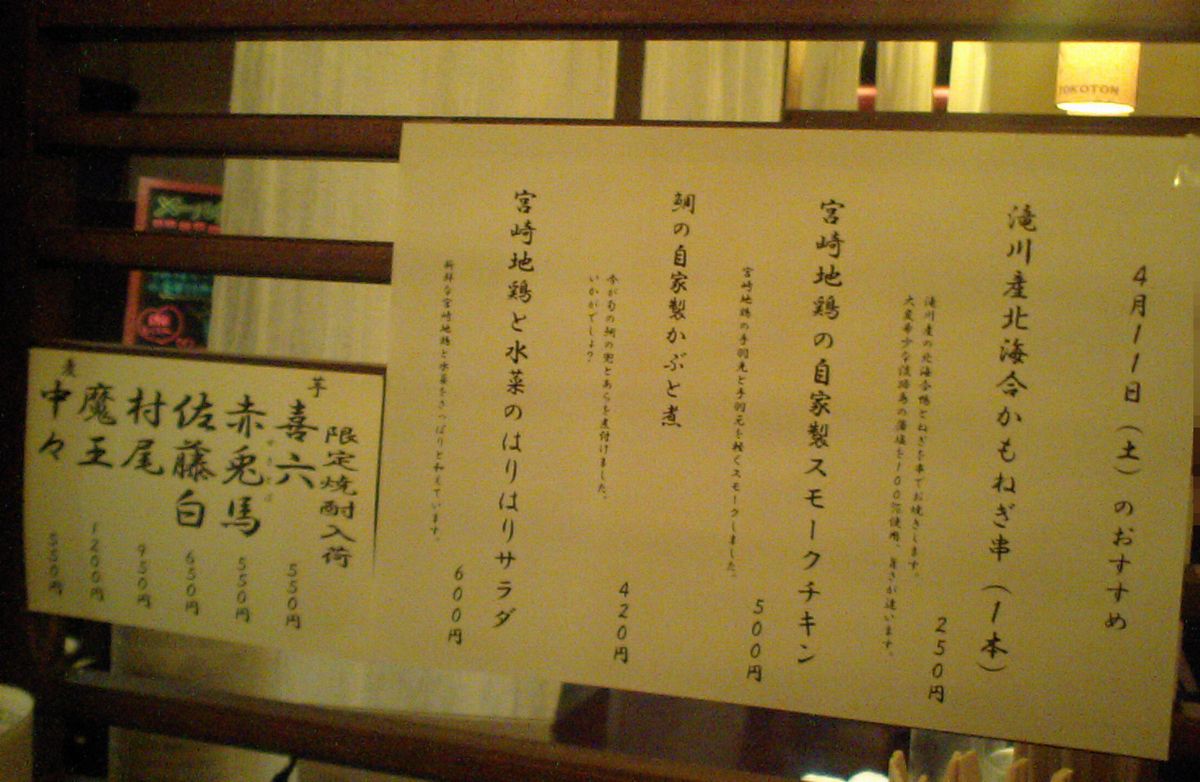 TOKOTON
4月11日(土)のおすすめ
滝川産北海合かもねぎ串(1本)
滝川産の北海合鴨とねぎを串でお焼きします。
大変希少な淡路島の藻塩を100%使用、旨さが違います。
250円
宮崎地鶏の自家製スモークチキン
宮崎地鶏の手羽先と手羽元を軽くスモークしました。
500円
鯛の自家製かぶと煮
今が旬の鯛の兜とあらを煮付けました。
いかがでしょ?
420円
宮崎地鶏と水菜のはりはりサラダ
新鮮な宮崎地鶏と水菜をさっぱりと和えています。
600円
限定焼酎入荷
芋
喜六
550円
赤兎馬
550円
佐藤白
650円
村尾
950円
魔王
1200円
麦
中々
550円